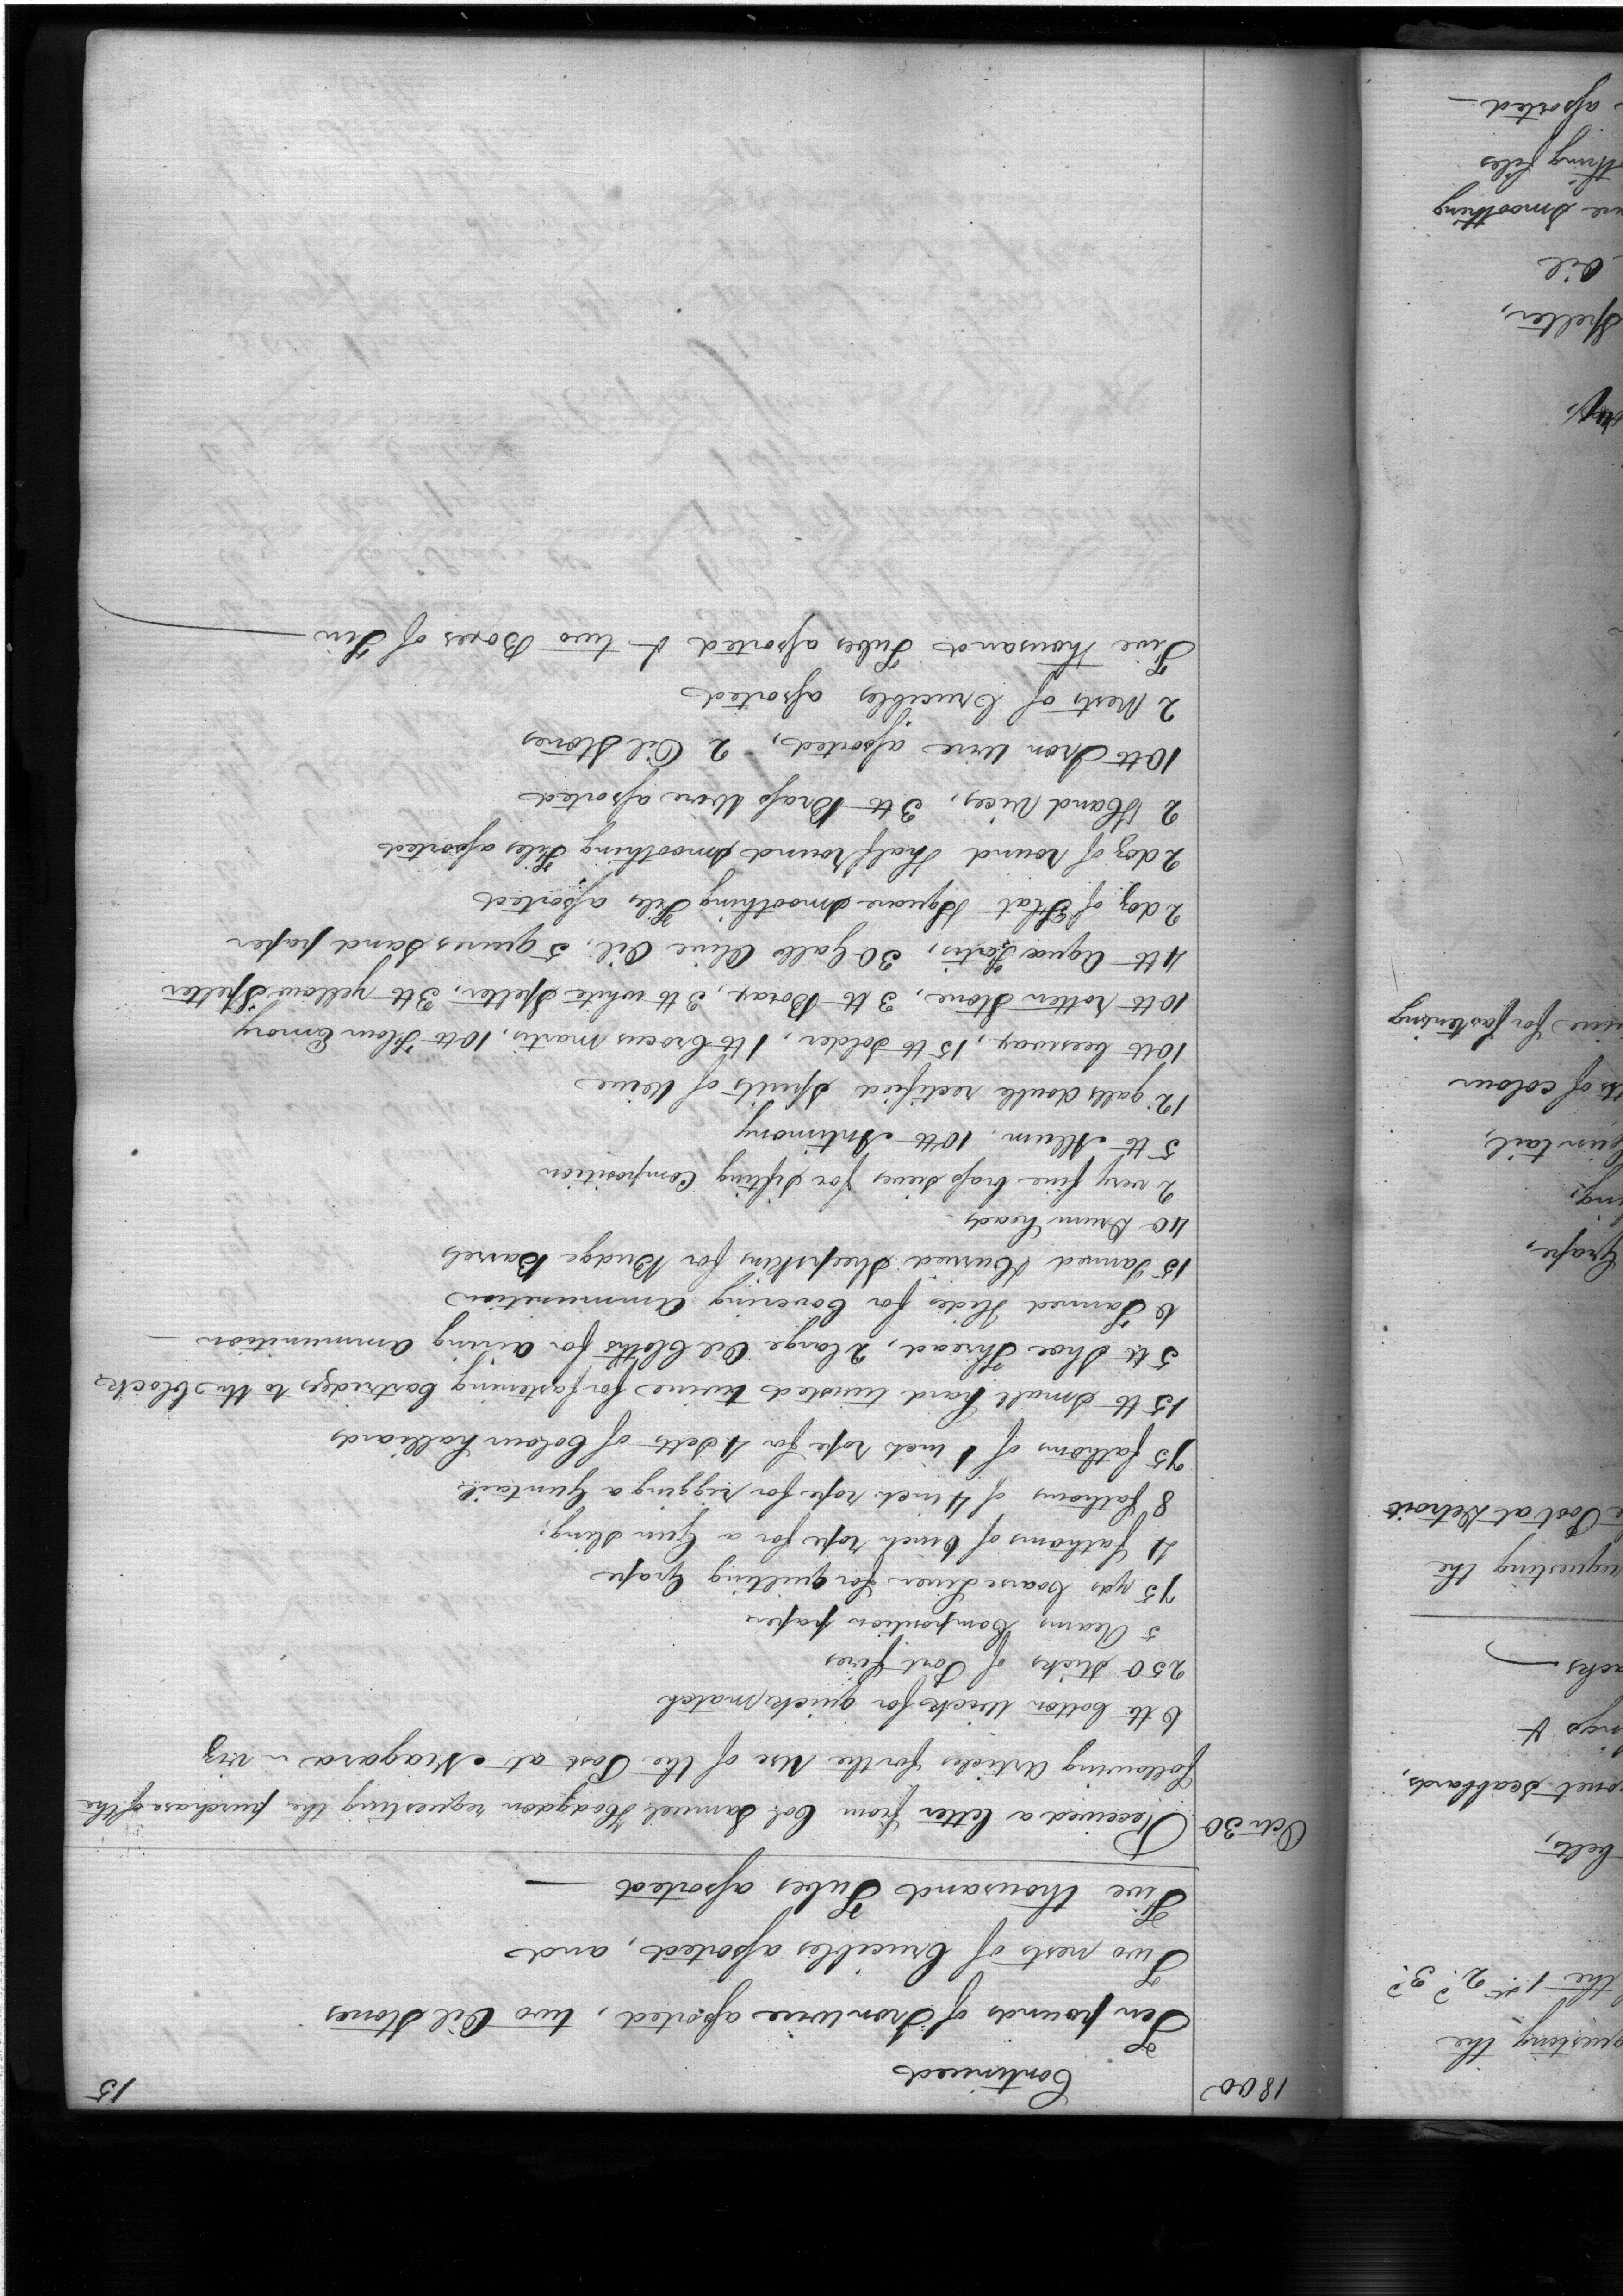 1800
15
Continued
Ten pounds of Iron wire assorted, two Oil Stones
Two nests of Crucibles assorted, and
Five thousand Tubes assorted —
Octr 30
Received a letter from Col. Samuel Hodgdon requesting the purchase of the
following Articles for the Use of the Post at Niagara – viz
6 lb Cotton Wicks for quick match
250 sticks of Port fires
5 Reams Composition paper
75 yds Coarse Linen for quilting Grape
4 fathoms of 6 inch rope for a Gun Sling;
8 fathoms of 4 inch rope for rigging a Guntail
75 fathoms of 1 inch rope for 4 Setts of Colour halliards
15 lb Small hard twisted twine for fastening Cartridges to the blocks
5 lb Shoe Thread, 2 large Oil Cloths for airing Ammunition —
6 Tanned Hides for Covering Ammunition
15 Tanned & Curried Sheepskins for Budge Barrels
40 Drum heads
2 very fine brass sieves for sifting Composition
5 lb Allum. 10 lb Antimony
12 galls double rectified Spirits of Wine
10 lb beeswax, 15 lb Solder, 1 lb Crocus martis, 10 lb Flour Emory
10 lb rotten Stone, 3 lb Borax, 3 lb white Spelter, 3 lb yellow Spelter
4 lb Aqua Fortis, 30 Galls Olive Oil, 5 quires Sand paper
2 doz of Flat & Square Smoothing Files assorted
2 doz of round & half round Smoothing Files assorted
2 Hand Vices, 3 lb Brass Wire assorted
10 lb Iron Wire assorted, 2 Oil Stones
2 Nests of Crucibles assorted
Five thousand Tubes assorted & two Boxes of Tin
questing the
the 1st 2d 3d
belts,
Scabbards,
&
requesting the
Post at Detroit
Grape,
Guntail,
of colour
for fastening
Spelter,
Oil
Smoothing
files
assorted —